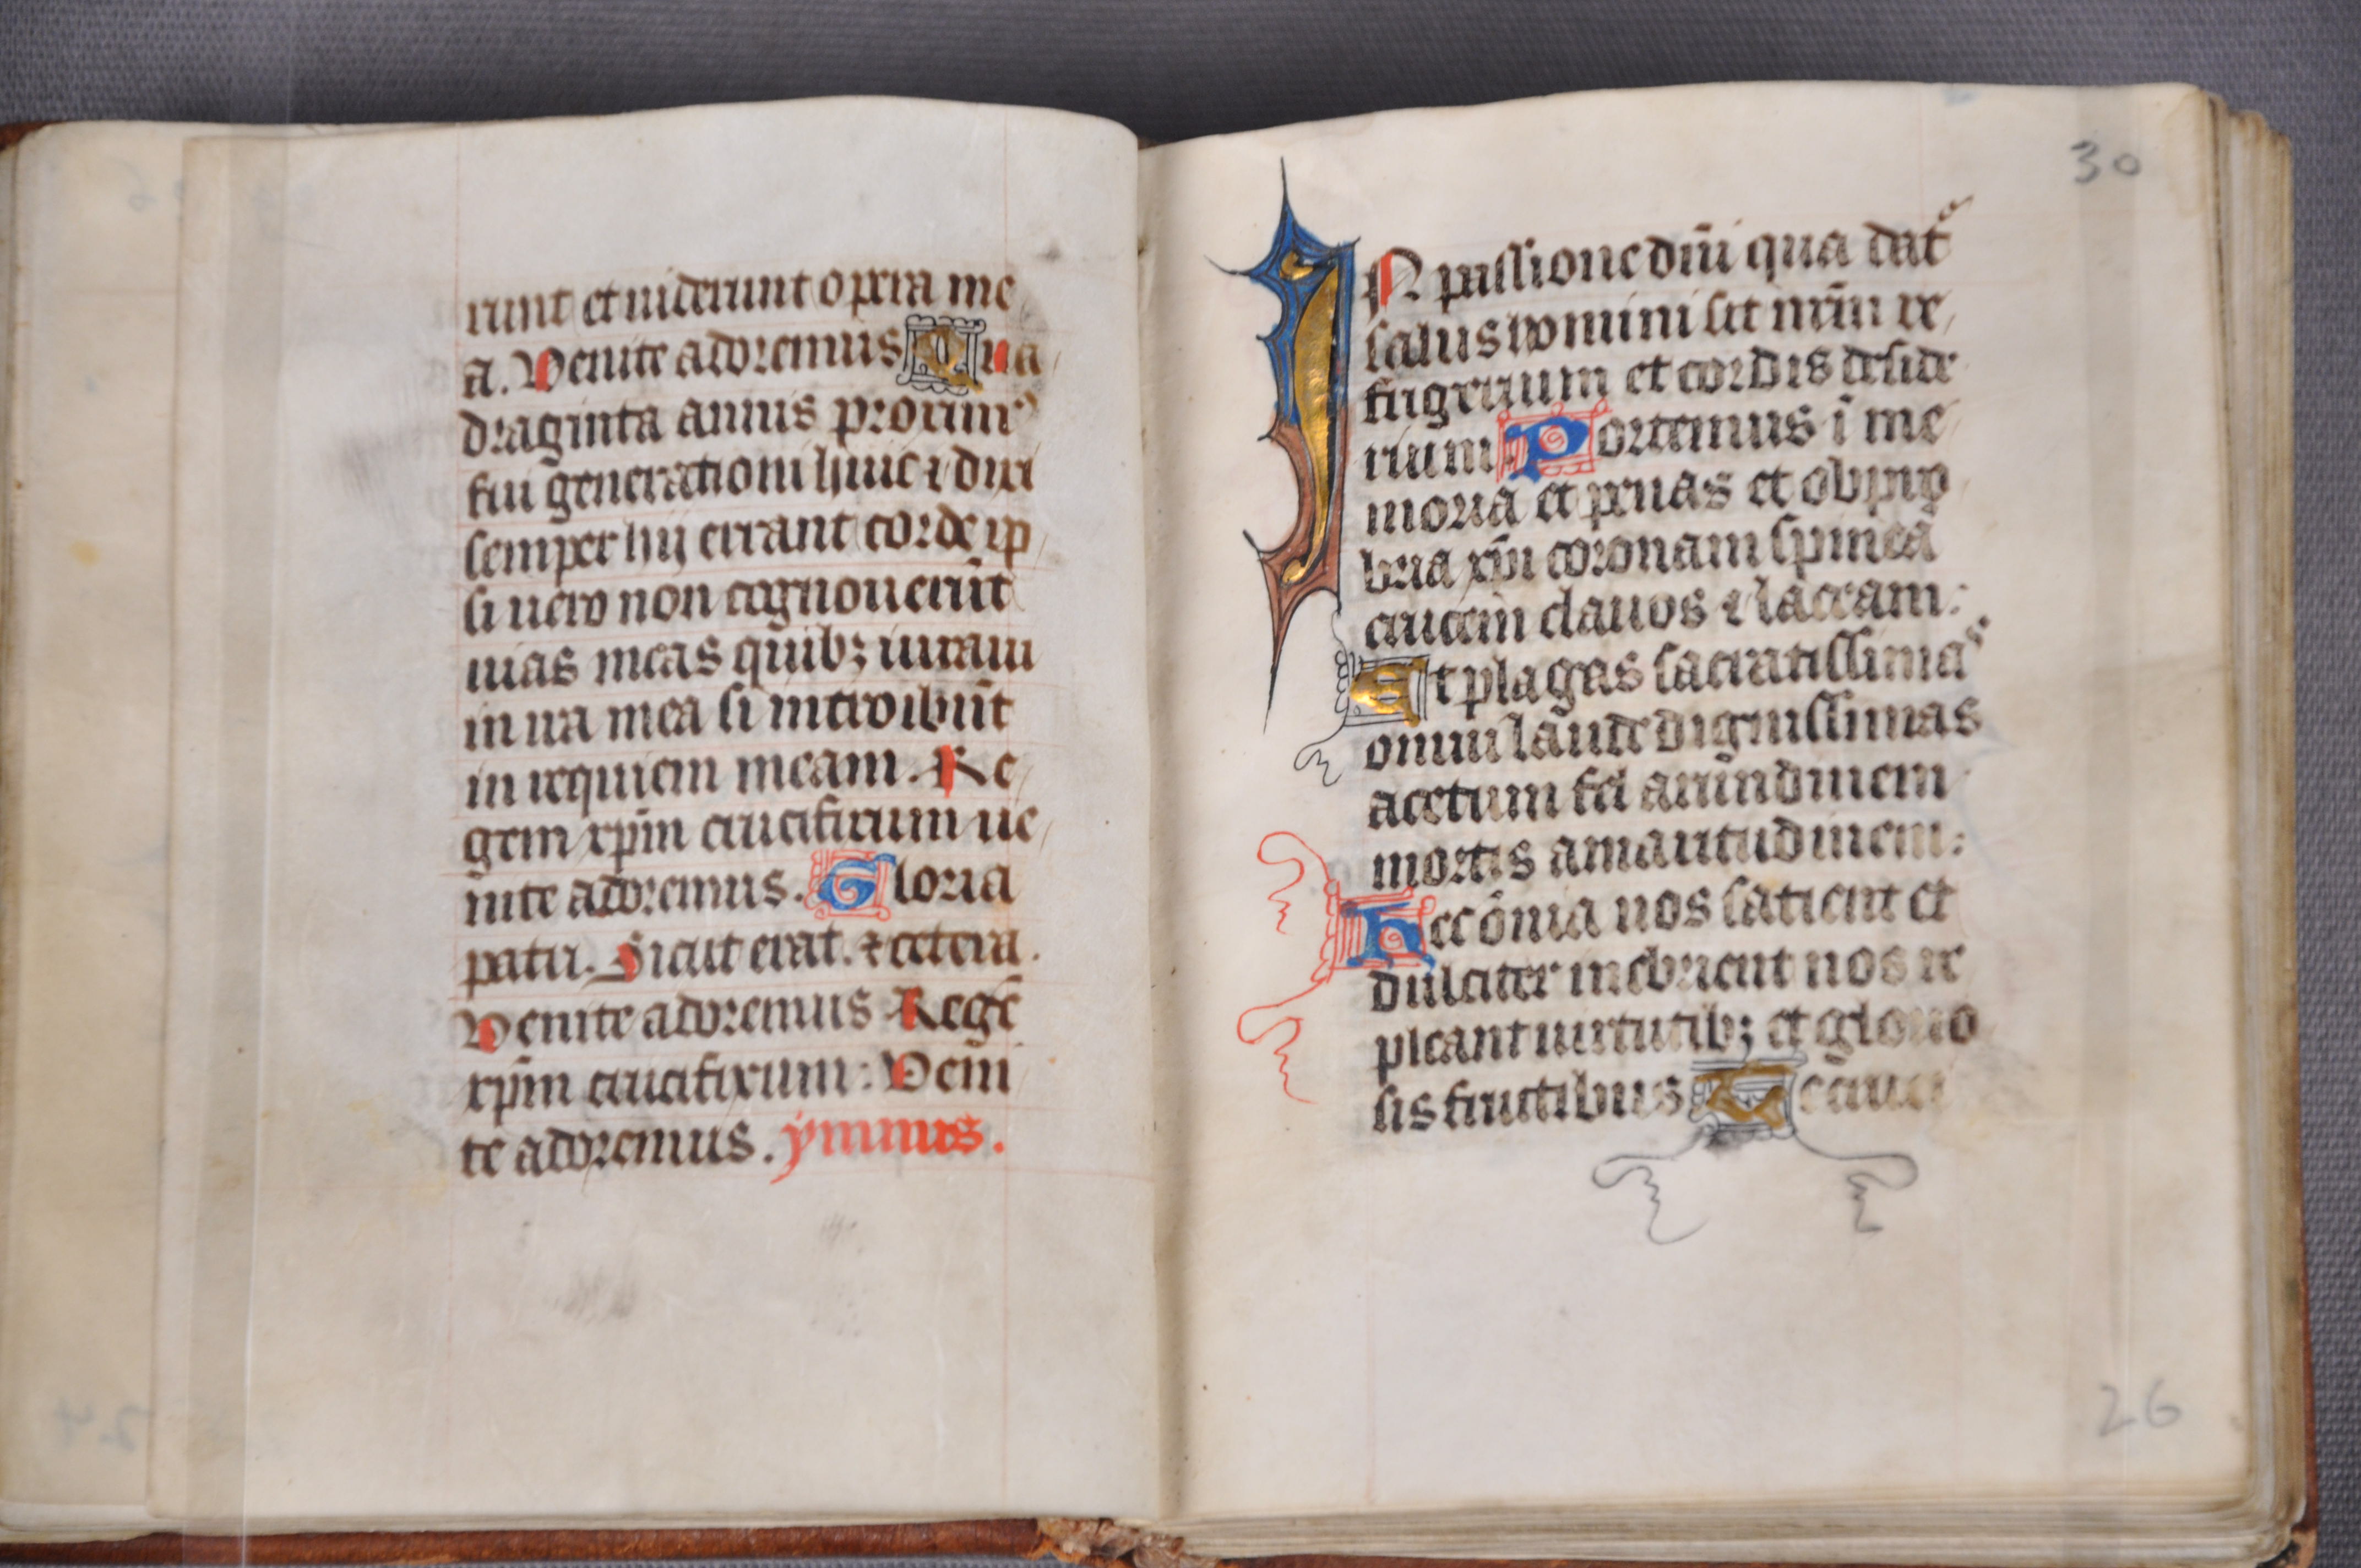 runt et uiderunt opera me
a. Venite adoremus Qua
draginta annis proxim⁹
fui generationi huic ⁊ dixi
semper hij errant corde ip
si uero non cognouerūt
uias meas quib; iuraui
in ira mea si introibūt
in requiem meam. Re
gem xp̄m crucifixum ue
nite adoremus. Gloria
patri. Sicut erat. ⁊ cetera.
Venite adoremus Regē
xp̄m crucifixum: Veni
te adoremus. ymnus.
30
IN passione dn̄i qua dat᷑
salus homini sit nr̄m re
frigerium et cordis deside
rium Portemus ī me
moria et penas et obpro
bria xp̄i coronam spineā
crucem clauos ⁊ lanceam:
Et plagas sacratissimas
omni laude dignissimas
acetum fel arundinem
mortis amaritudinem:
Hec ōnia nos satient et
dulciter inebrient nos re
pleant uirtutib; et glorio
sis fructibus Te cruci
26